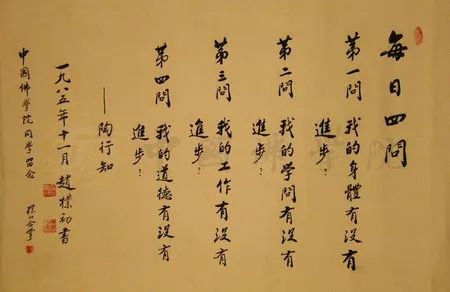 每日四問
第一問 我的身體有没有
進步？
第二問 我的学問有没有
進步？
第三問 我的工作有没有
進步？
第四問 我的道德有没有
進步？
——陶行知
一九八五年十一月趙樸初書
中國佛学院同学留念